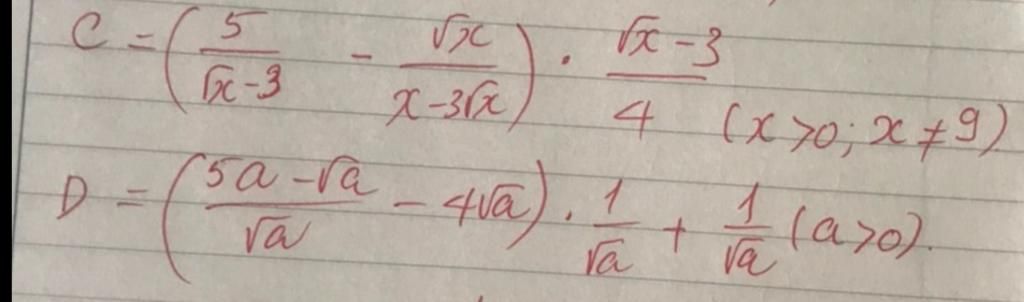 C = (5/(√x - 3) - √x/(x - 3√x)) · (√x - 3)/4 (x>0; x≠9)
D = ((5a - √a)/√a - 4√a) · 1/√a + 1/√a (a>0).